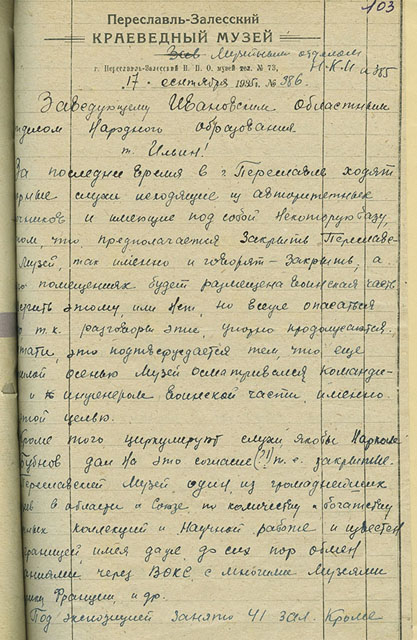 103
Переславль-Залесский
КРАЕВЕДНЫЙ МУЗЕЙ
Музейным отделом
Н.К.П. и 385
г. Переславль-Залесский И. П. О. музей тел. № 73,
17 - сентября 1935 г. № 386.
Заведующему Ивановским областным
тделом Народного образования
т. Ильин!
За последнее время в г Переславле ходят
орные слухи исходящие из авторитетных
очников и имеющие под собой некоторую базу,
ом, что предполагается закрыть Переславс-
Музей, так именно и говорят - закрыть, а
о помещениях будет размещена воинская часть
этому, или нет, но вынуж опасаться
т.к. разговоры эти, упорно продолжаются.
тати, это подтверждается тем, что еще
лой осенью Музей осматривался команди-
и к инженером воинской части, именно
той целью.
роме того циркулируют слухи якобы Нарком
Бубнов дал на это согласие (?!) т.е. закрытие
Переславский Музей, один из громаднейших
в в области и Союзе, по количеству и богатству
ных коллекций и научной работе и известен
границей имея даже до сих пор обмен
аниями, через ВОКС, с многими Музеями
Франции, и др.
Под экспозицией занято 41 зал. Кроме